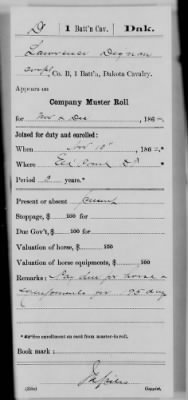 D | 1 Batt'n Cav. | Dak.
Lawrence Degnan
Corpl, Co. B, 1 Batt'n, Dakota Cavalry.
Appears on
Company Muster Roll
for Nov & Dec, 186
Joined for duty and enrolled:
When Nov 10, 186
Where Elk Point D.T.
Period 3 years.*
Present or absent Present
Stoppage, $ 100 for
Due Gov't, $ 100 for
Valuation of horse, $ 100
Valuation of horse equipments, $ 100
Remarks: Pay due for horse &
equipments for 25 days
*See enrollment on card from muster-in roll.
Book mark:
Copyist.